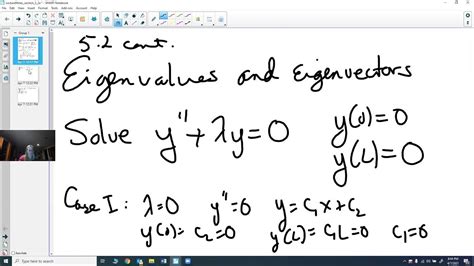 5.2 cont.
Eigenvalues and Eigenvectors
Solve y" + λy = 0 y(0) = 0
y(L) = 0
Case I: λ=0 y"=0 y = C₁x + C₂
y(0) = C₂ = 0 y(L) = C₁L = 0 C₁ = 0